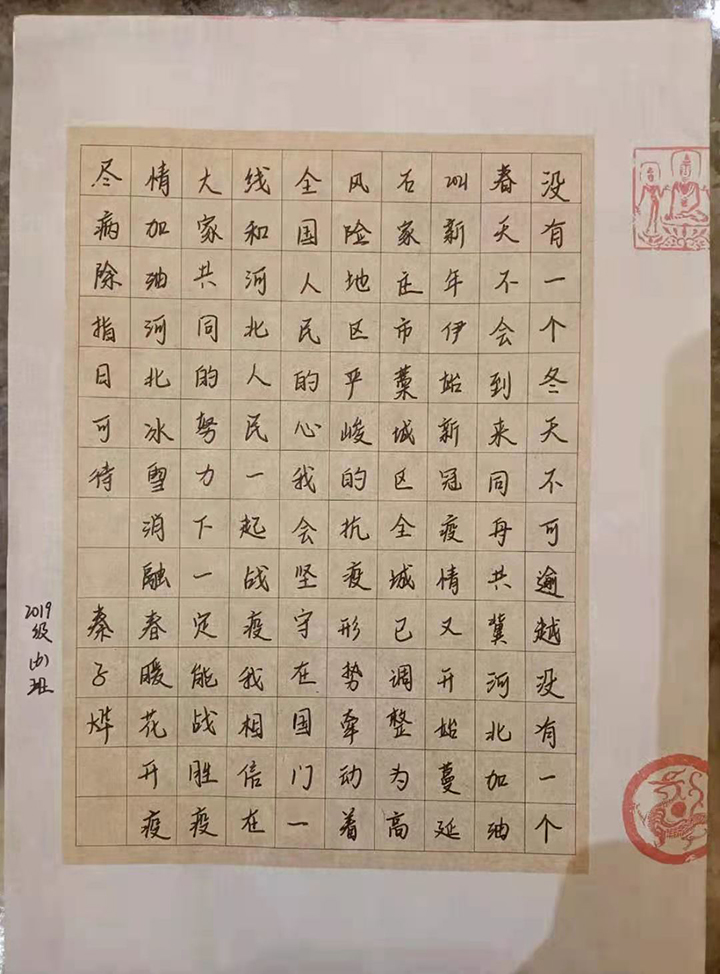 没有一个冬天不可逾越没有一个
春天不会到来同舟共冀河北加油
2021新年伊始新冠疫情又开始蔓延
石家庄市藁城区全城已调整为高
风险地区严峻的抗疫形势牵动着
全国人民的心我会坚守在国门一
线和河北人民一起战疫我相信在
大家共同的努力下一定能战胜疫
情加油河北冰雪消融春暖花开疫
尽病除指日可待 秦子烨
2019级班